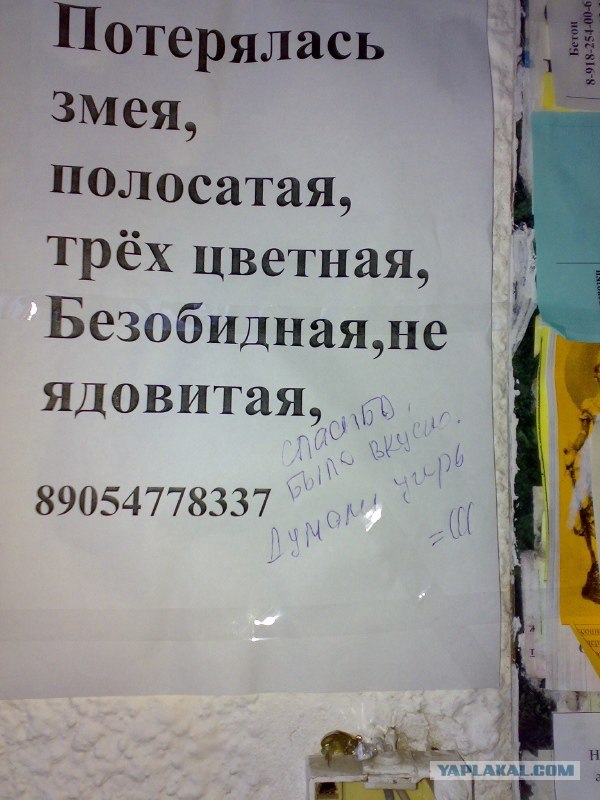 Потерялась
змея,
полосатая,
трёх цветная,
Безобидная,не
ядовитая,
89054778337
спасибо,
было вкусно.
Думали угорь
=(((
Бетон
8-918-254-00-6
YAPLAKAL.COM